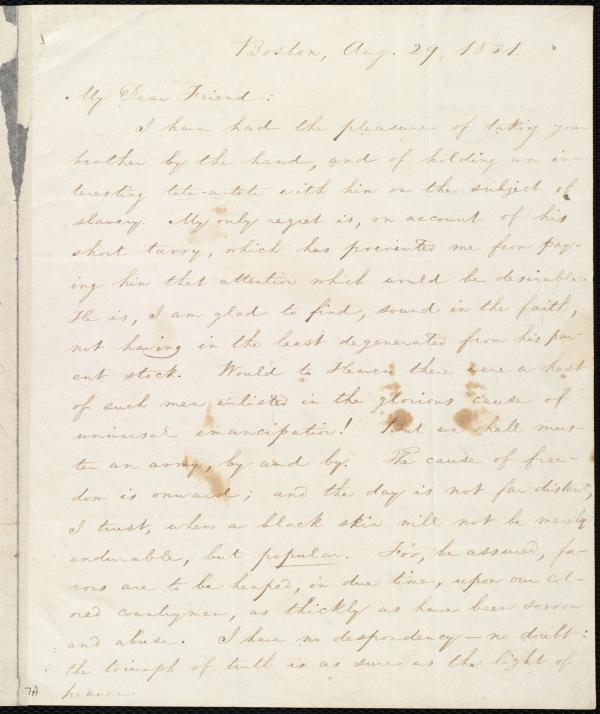 Boston, Aug. 29, 1831.
My Dear Friend:
I have had the pleasure of taking your
brother by the hand, and of holding an in-
teresting tete-a-tete with him on the subject of
slavery. My only regret is, on account of his
short tarry, which has prevented me from pay-
ing him that attention which would be desirable.
He is, I am glad to find, sound in the faith,
not having in the least degenerated from his par-
ent stock. Would to Heaven there were a host
of such men enlisted in the glorious cause of
universal emancipation! But we shall mus-
ter an army, by and by. The cause of free-
dom is onward; and the day is not far distant,
I trust, when a black skin will not be merely
endurable, but popular. For, be assured, fa-
vors are to be heaped, in due time, upon our col-
ored countrymen, as thickly as have been sorrow
and abuse. I have no despondency — no doubt:
the triumph of truth is as sure as the light of
heaven.
7A